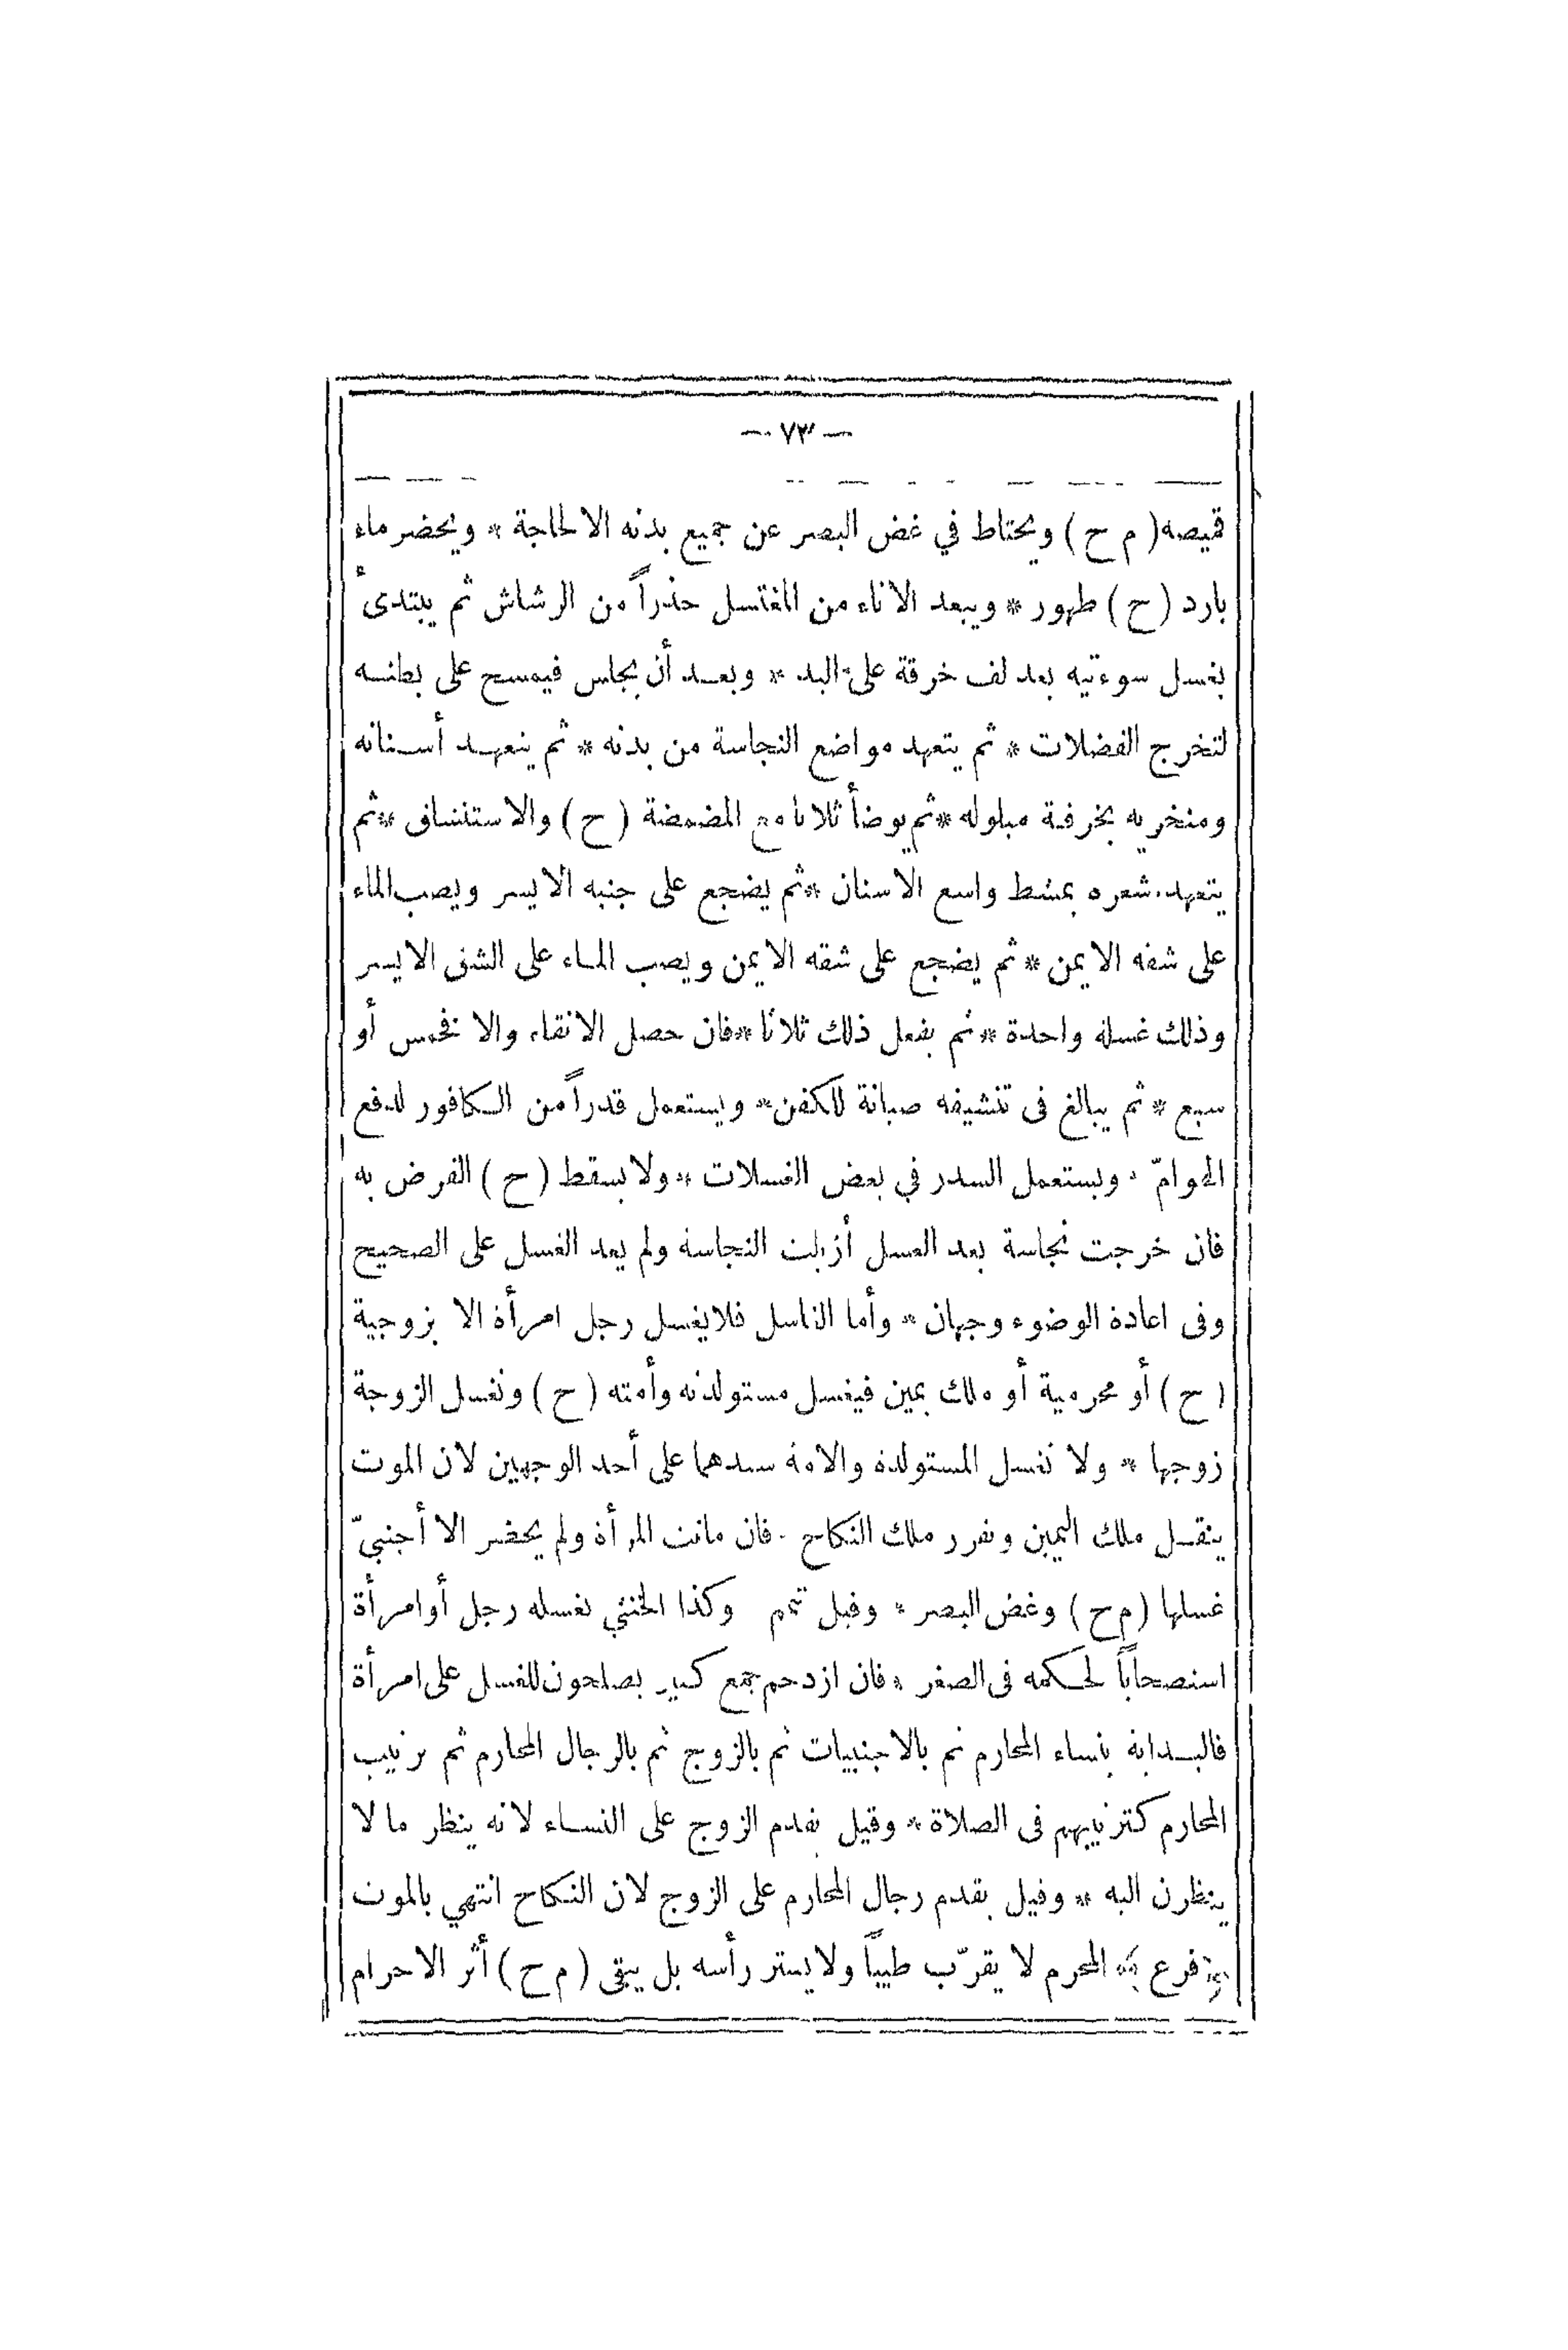 — ٧٣ —
قميصه (م ح) ويحتاط في غض البصر عن جميع بدنه الا لحاجة * ويحضر ماء
بارد (ح) طهور * ويبعد الاناء من المغتسل حذراً من الرشاش ثم يبتدئ
بغسل سوءتيه بعد لف خرقة على اليد * وبعد أن يجلس فيمسح على بطنه
لتخرج الفضلات * ثم يتعهد مواضع النجاسة من بدنه * ثم يتعهد أسنانه
ومنخريه بخرقة مبلوله * ثم يوضأ ثلاثا مع المضمضة (ح) والاستنشاق * ثم
يتعهد شعره بمشط واسع الاسنان * ثم يضجع على جنبه الايسر ويصب الماء
على شقه الايمن * ثم يضجع على شقه الايمن ويصب الماء على الشق الايسر
وذلك غسلة واحدة * ثم يفعل ذلك ثلاثا * فان حصل الانقاء والا فخمس أو
سبع * ثم يبالغ فى تنشيفه صيانة للكفن * ويستعمل قدراً من الكافور لدفع
الهوامّ * ويستعمل السدر في بعض الغسلات * ولا يسقط (ح) الفرض به
فان خرجت نجاسة بعد الغسل أزيلت النجاسة ولم يعد الغسل على الصحيح
وفى اعادة الوضوء وجهان * وأما الغاسل فلا يغسل رجل امرأة الا بزوجية
(ح) أو محرمية أو ملك يمين فيغسل مستولدته وأمته (ح) وتغسل الزوجة
زوجها * ولا تغسل المستولدة والامة سيدهما على أحد الوجهين لان الموت
ينقل ملك اليمين ويقرر ملك النكاح * فان ماتت المرأة ولم يحضر الا أجنبيّ
غسلها (م ح) وغض البصر * وقيل تيمم وكذا الخنثي يغسله رجل أو امرأة
استصحاباً لحكمه فى الصغر * فان ازدحم جمع كثير يصلحون للغسل على امرأة
فالبداية بنساء المحارم ثم بالاجنبيات ثم بالزوج ثم بالرجال المحارم ثم ترتيب
المحارم كترتيبهم فى الصلاة * وقيل يقدم الزوج على النساء لانه ينظر ما لا
ينظرن اليه * وقيل يقدم رجال المحارم على الزوج لان النكاح انتهي بالموت
﴿ فرع ﴾ المحرم لا يقرّب طيباً ولا يستر رأسه بل يبقى (م ح) أثر الاحرام